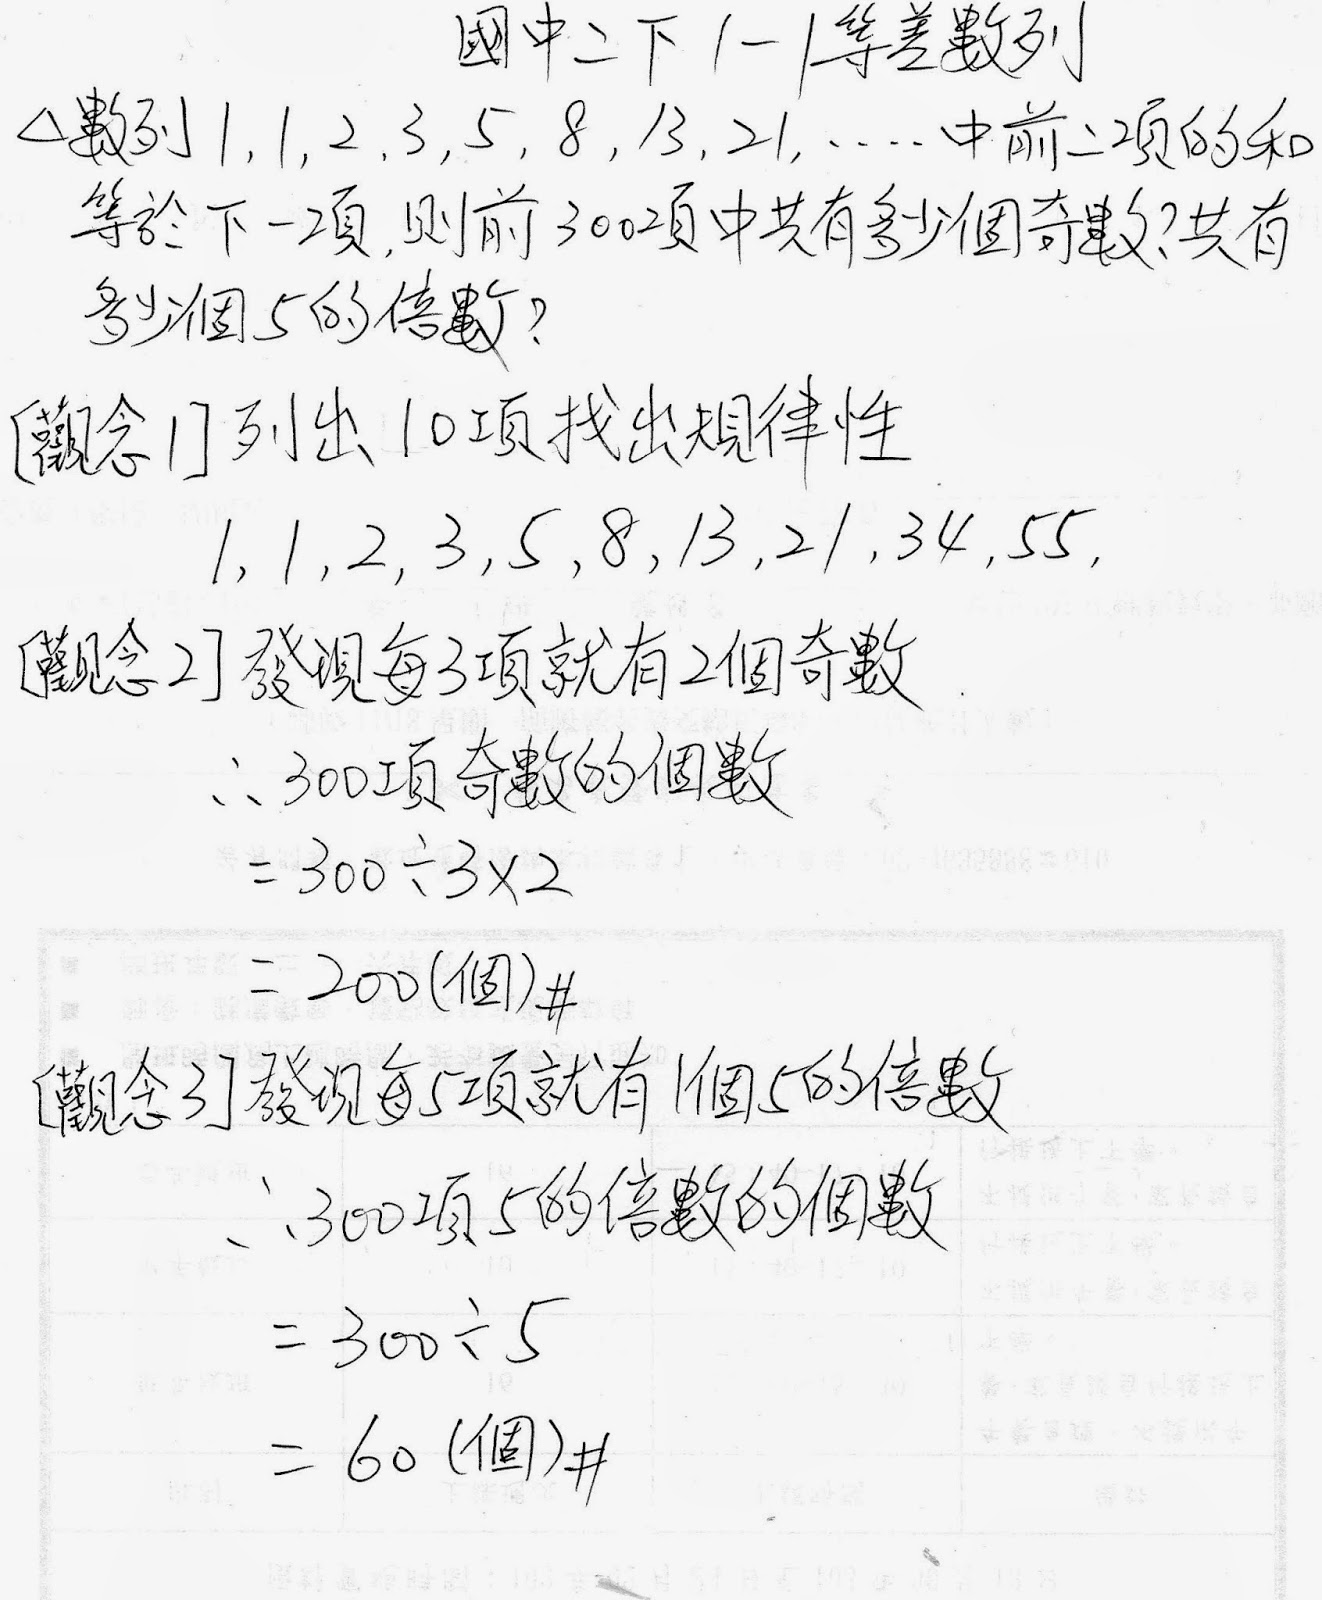 國中二下 1-1等差數列
△數列 1, 1, 2, 3, 5, 8, 13, 21, ..... 中前二項的和
等於下一項, 則前300項中共有多少個奇數? 共有
多少個5的倍數?
[觀念1] 列出10項找出規律性
1, 1, 2, 3, 5, 8, 13, 21, 34, 55,
[觀念2] 發現每3項就有2個奇數
∴ 300項奇數的個數
= 300÷3×2
= 200(個)#
[觀念3] 發現每5項就有1個5的倍數
∴ 300項5的倍數的個數
= 300÷5
= 60(個)#